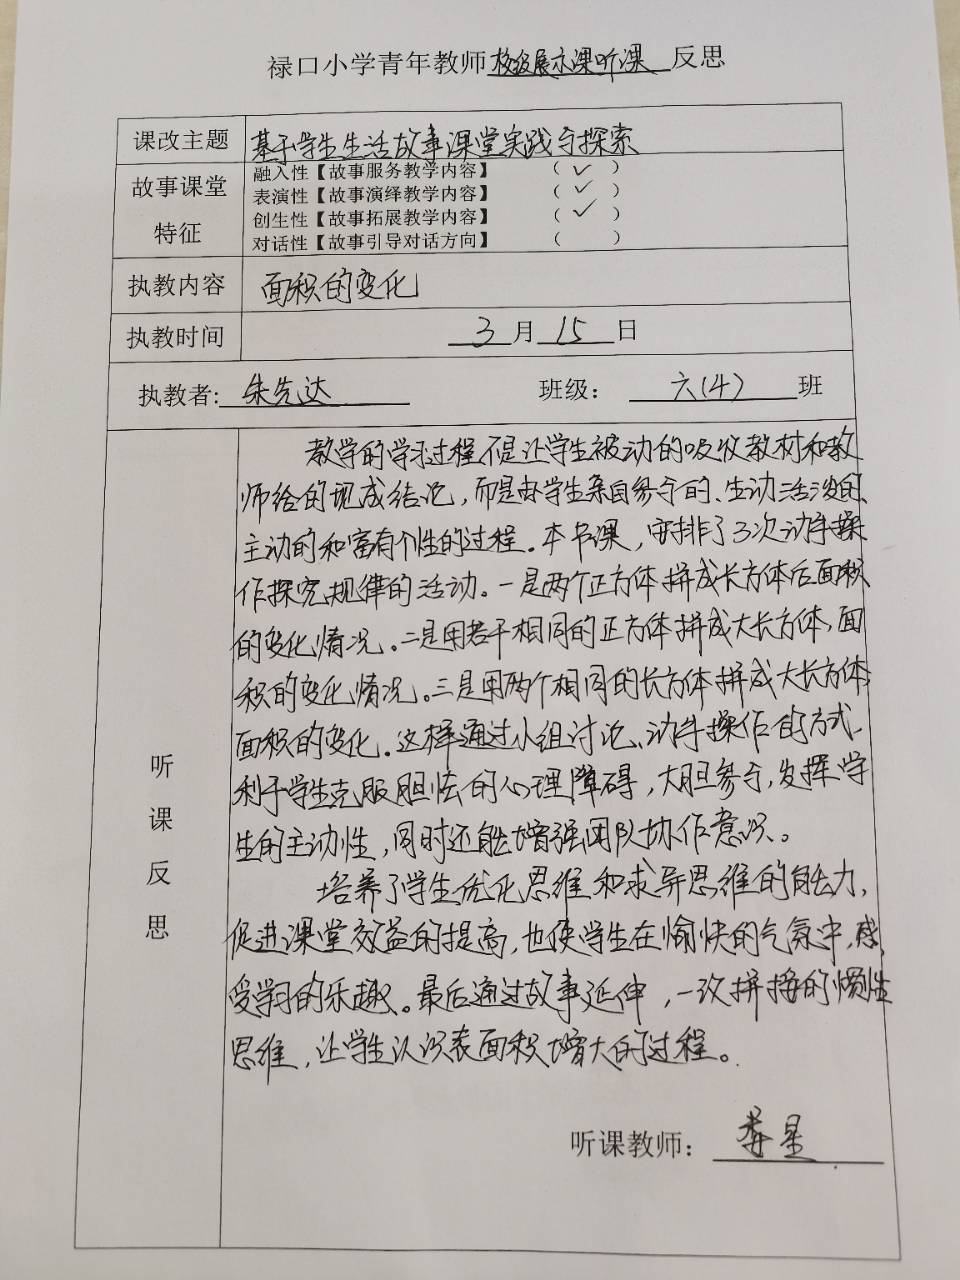 禄口小学青年教师校级展示课听课反思
课改主题 基于学生生活故事课堂实践与探索
故事课堂特征
融入性【故事服务教学内容】 （ ✓ ）
表演性【故事演绎教学内容】 （ ✓ ）
创生性【故事拓展教学内容】 （ ✓ ）
对话性【故事引导对话方向】 （ ）
执教内容 面积的变化
执教时间 3月15日
执教者：朱先达 班级：六（4）班
听课反思
教学的学习过程不是让学生被动的吸收教材和教
师给的现成结论，而是由学生亲自参与的、生动活泼的、
主动的和富有个性的过程。本节课，安排了3次动手操
作探究规律的活动。一是两个正方体拼成长方体后面积
的变化情况。二是用若干相同的正方体拼成大长方体，面
积的变化情况。三是用两个相同的长方体拼成大长方体
面积的变化。这样通过小组讨论、动手操作的方式，
利于学生克服胆怯的心理障碍，大胆参与，发挥学
生的主动性，同时还能增强团队协作意识。
培养了学生优化思维和求异思维的能力，
促进课堂效益的提高，也使学生在愉快的气氛中，感
受学习的乐趣。最后通过故事延伸，一改拼接的惯性
思维，让学生认识表面积增大的过程。
听课教师：星